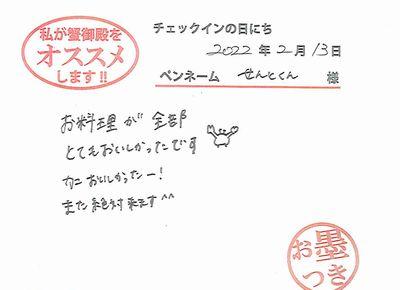 私が蟹御殿を
オススメ
します!!
チェックインの日にち
2022年2月13日
ペンネーム せんとくん 様
お料理が全部
とてもおいしかったです
カニおいしかったー!
また絶対来ます^^
お墨
つき